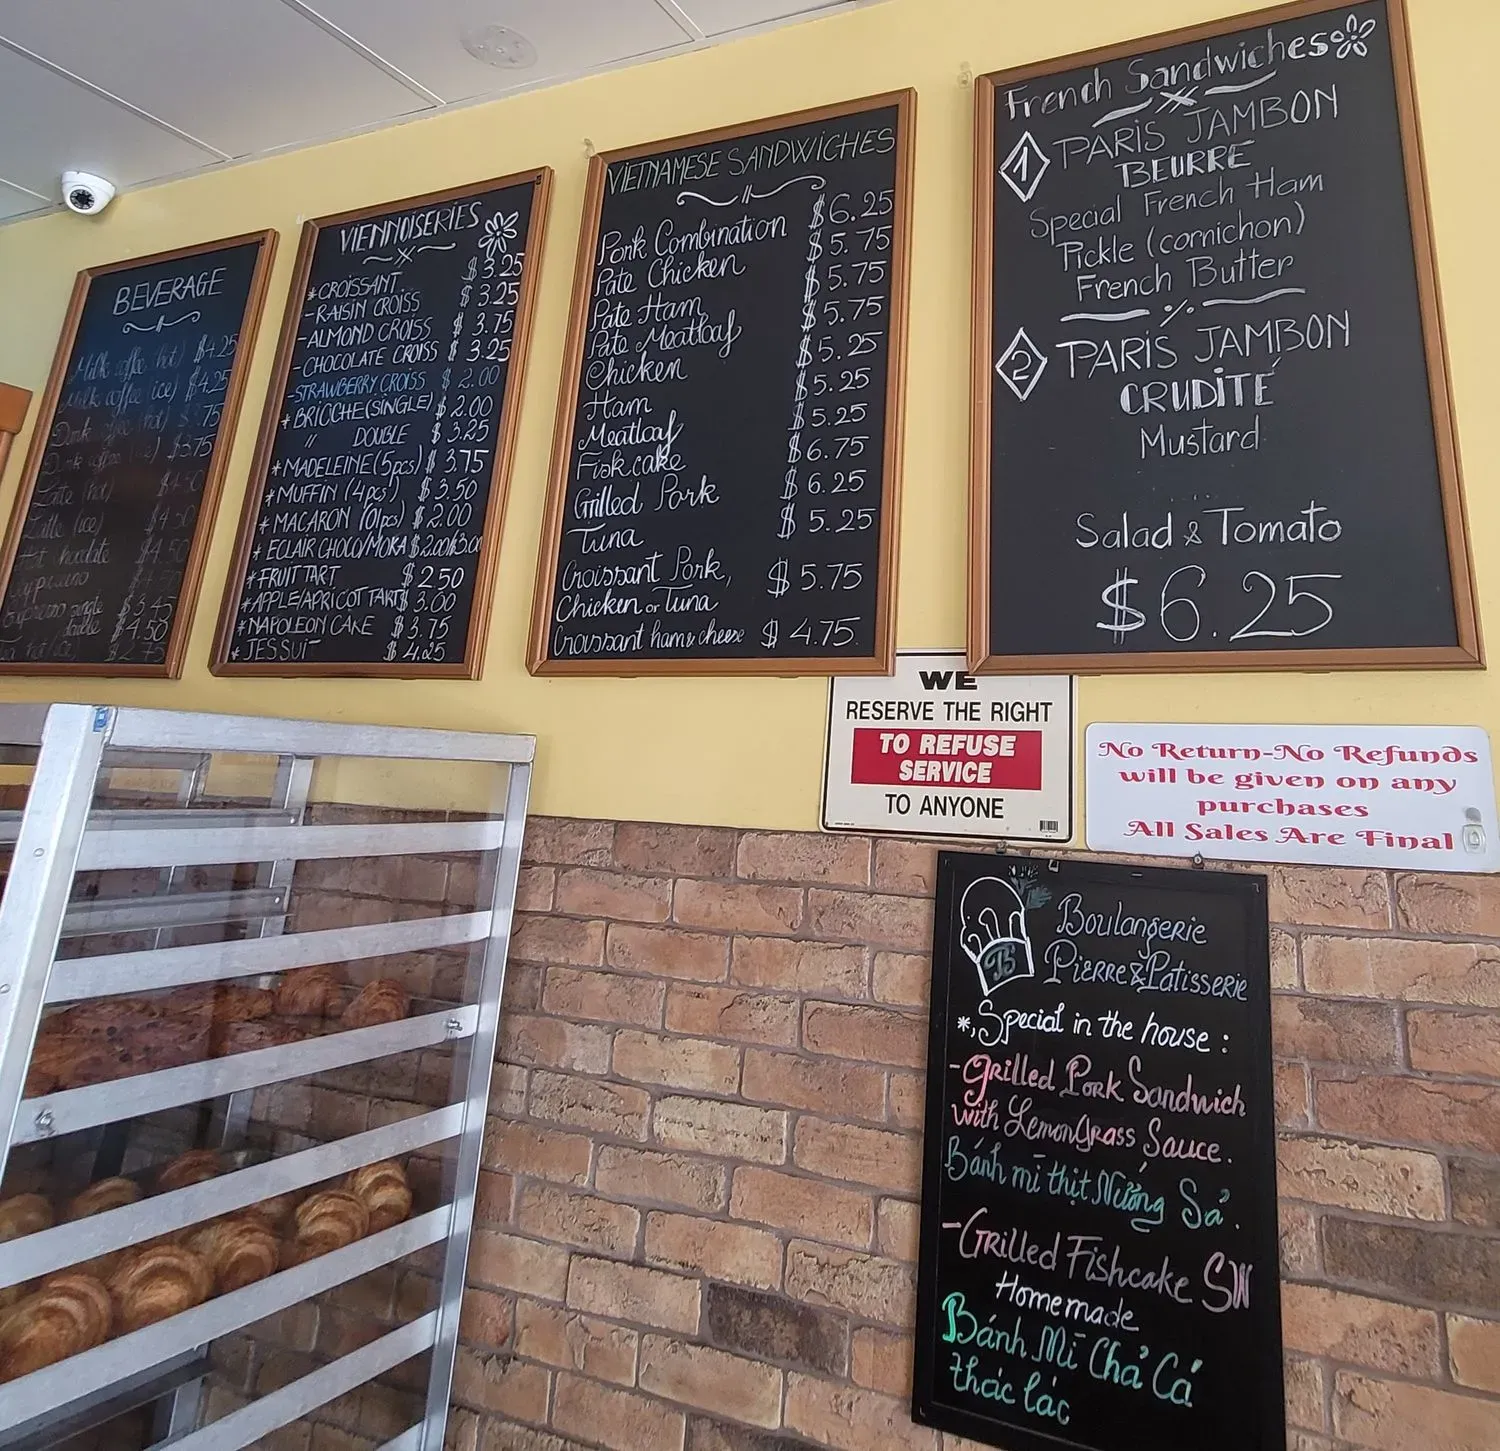 BEVERAGE
Milk coffee (hot) $4.25
Milk coffee (ice) $4.25
(hot) $ .75
$3.75
Latte (hot) $4.50
Latte (ice) $4.50
Hot chocolate $4.50
Espresso single $3.45
double $4.50
$2.75
VIENNOISERIES
*CROISSANT $3.25
-RAISIN CROISS $3.25
-ALMOND CROISS $3.75
-CHOCOLATE CROISS $3.25
-STRAWBERRY CROISS $2.00
*BRIOCHE(SINGLE) $2.00
" DOUBLE $3.25
*MADELEINE(5pcs) $3.75
*MUFFIN (4pcs) $3.50
*MACARON (01pcs) $2.00
*ECLAIR CHOCO/MOKA $2.00/3.00
*FRUIT TART $2.50
*APPLE/APRICOT TART $3.00
*NAPOLEON CAKE $3.75
*JESSUIT $4.25
VIETNAMESE SANDWICHES
Pork Combination $6.25
Pate Chicken $5.75
Pate Ham $5.75
Pate Meatloaf $5.75
Chicken $5.25
Ham $5.25
Meatloaf $5.25
Fishcake $6.75
Grilled Pork $6.25
Tuna $5.25
Croissant Pork,
Chicken or Tuna $5.75
Croissant ham & cheese $4.75
French Sandwiches
1 PARIS JAMBON
BEURRE
Special French Ham
Pickle (cornichon)
French Butter
2 PARIS JAMBON
CRUDITÉ
Mustard
Salad & Tomato
$6.25
WE
RESERVE THE RIGHT
TO REFUSE
SERVICE
TO ANYONE
No Return-No Refunds
will be given on any
purchases
All Sales Are Final
Boulangerie
Pierre & Patisserie
*, Special in the house :
-Grilled Pork Sandwich
with LemonGrass Sauce.
Bánh mì thịt Nướng Sả.
-Grilled Fishcake SW
Homemade
Bánh Mì Chả Cá
thác lác